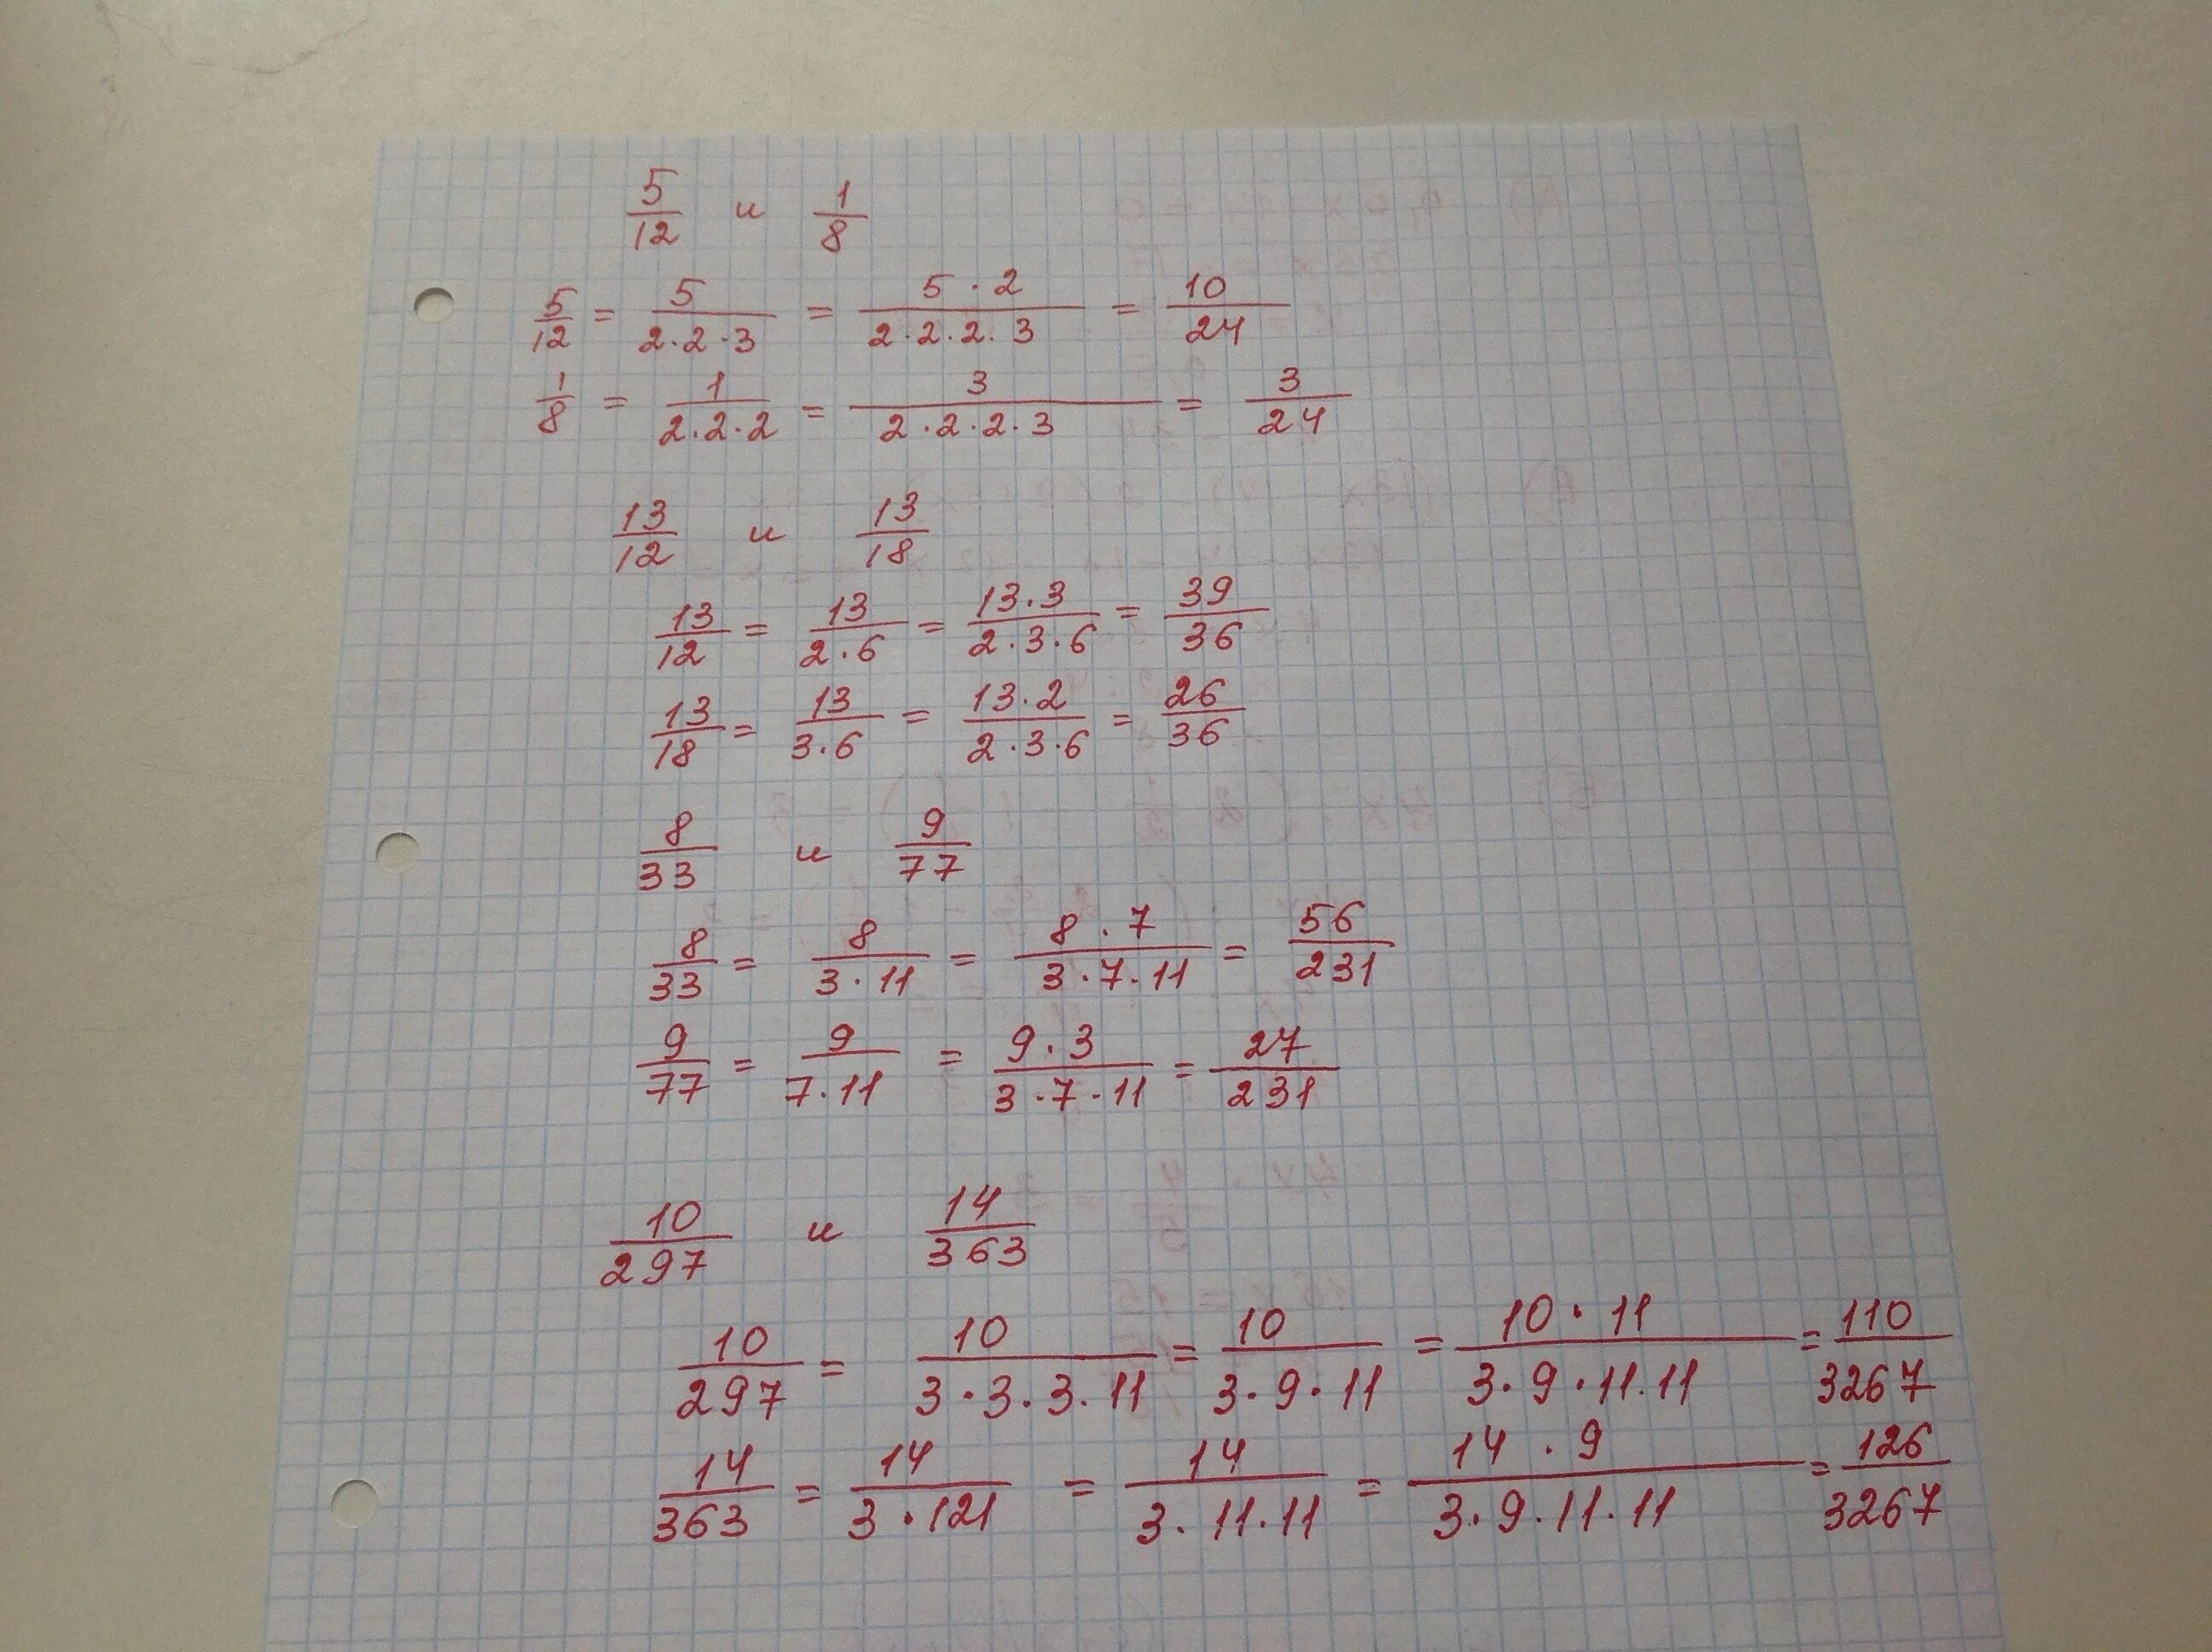 5/12 и 1/8
5/12 = 5/(2·2·3) = (5·2)/(2·2·2·3) = 10/24
1/8 = 1/(2·2·2) = 3/(2·2·2·3) = 3/24
13/12 и 13/18
13/12 = 13/(2·6) = (13·3)/(2·3·6) = 39/36
13/18 = 13/(3·6) = (13·2)/(2·3·6) = 26/36
8/33 и 9/77
8/33 = 8/(3·11) = (8·7)/(3·7·11) = 56/231
9/77 = 9/(7·11) = (9·3)/(3·7·11) = 27/231
10/297 и 14/363
10/297 = 10/(3·3·3·11) = 10/(3·9·11) = (10·11)/(3·9·11·11) = 110/3267
14/363 = 14/(3·121) = 14/(3·11·11) = (14·9)/(3·9·11·11) = 126/3267